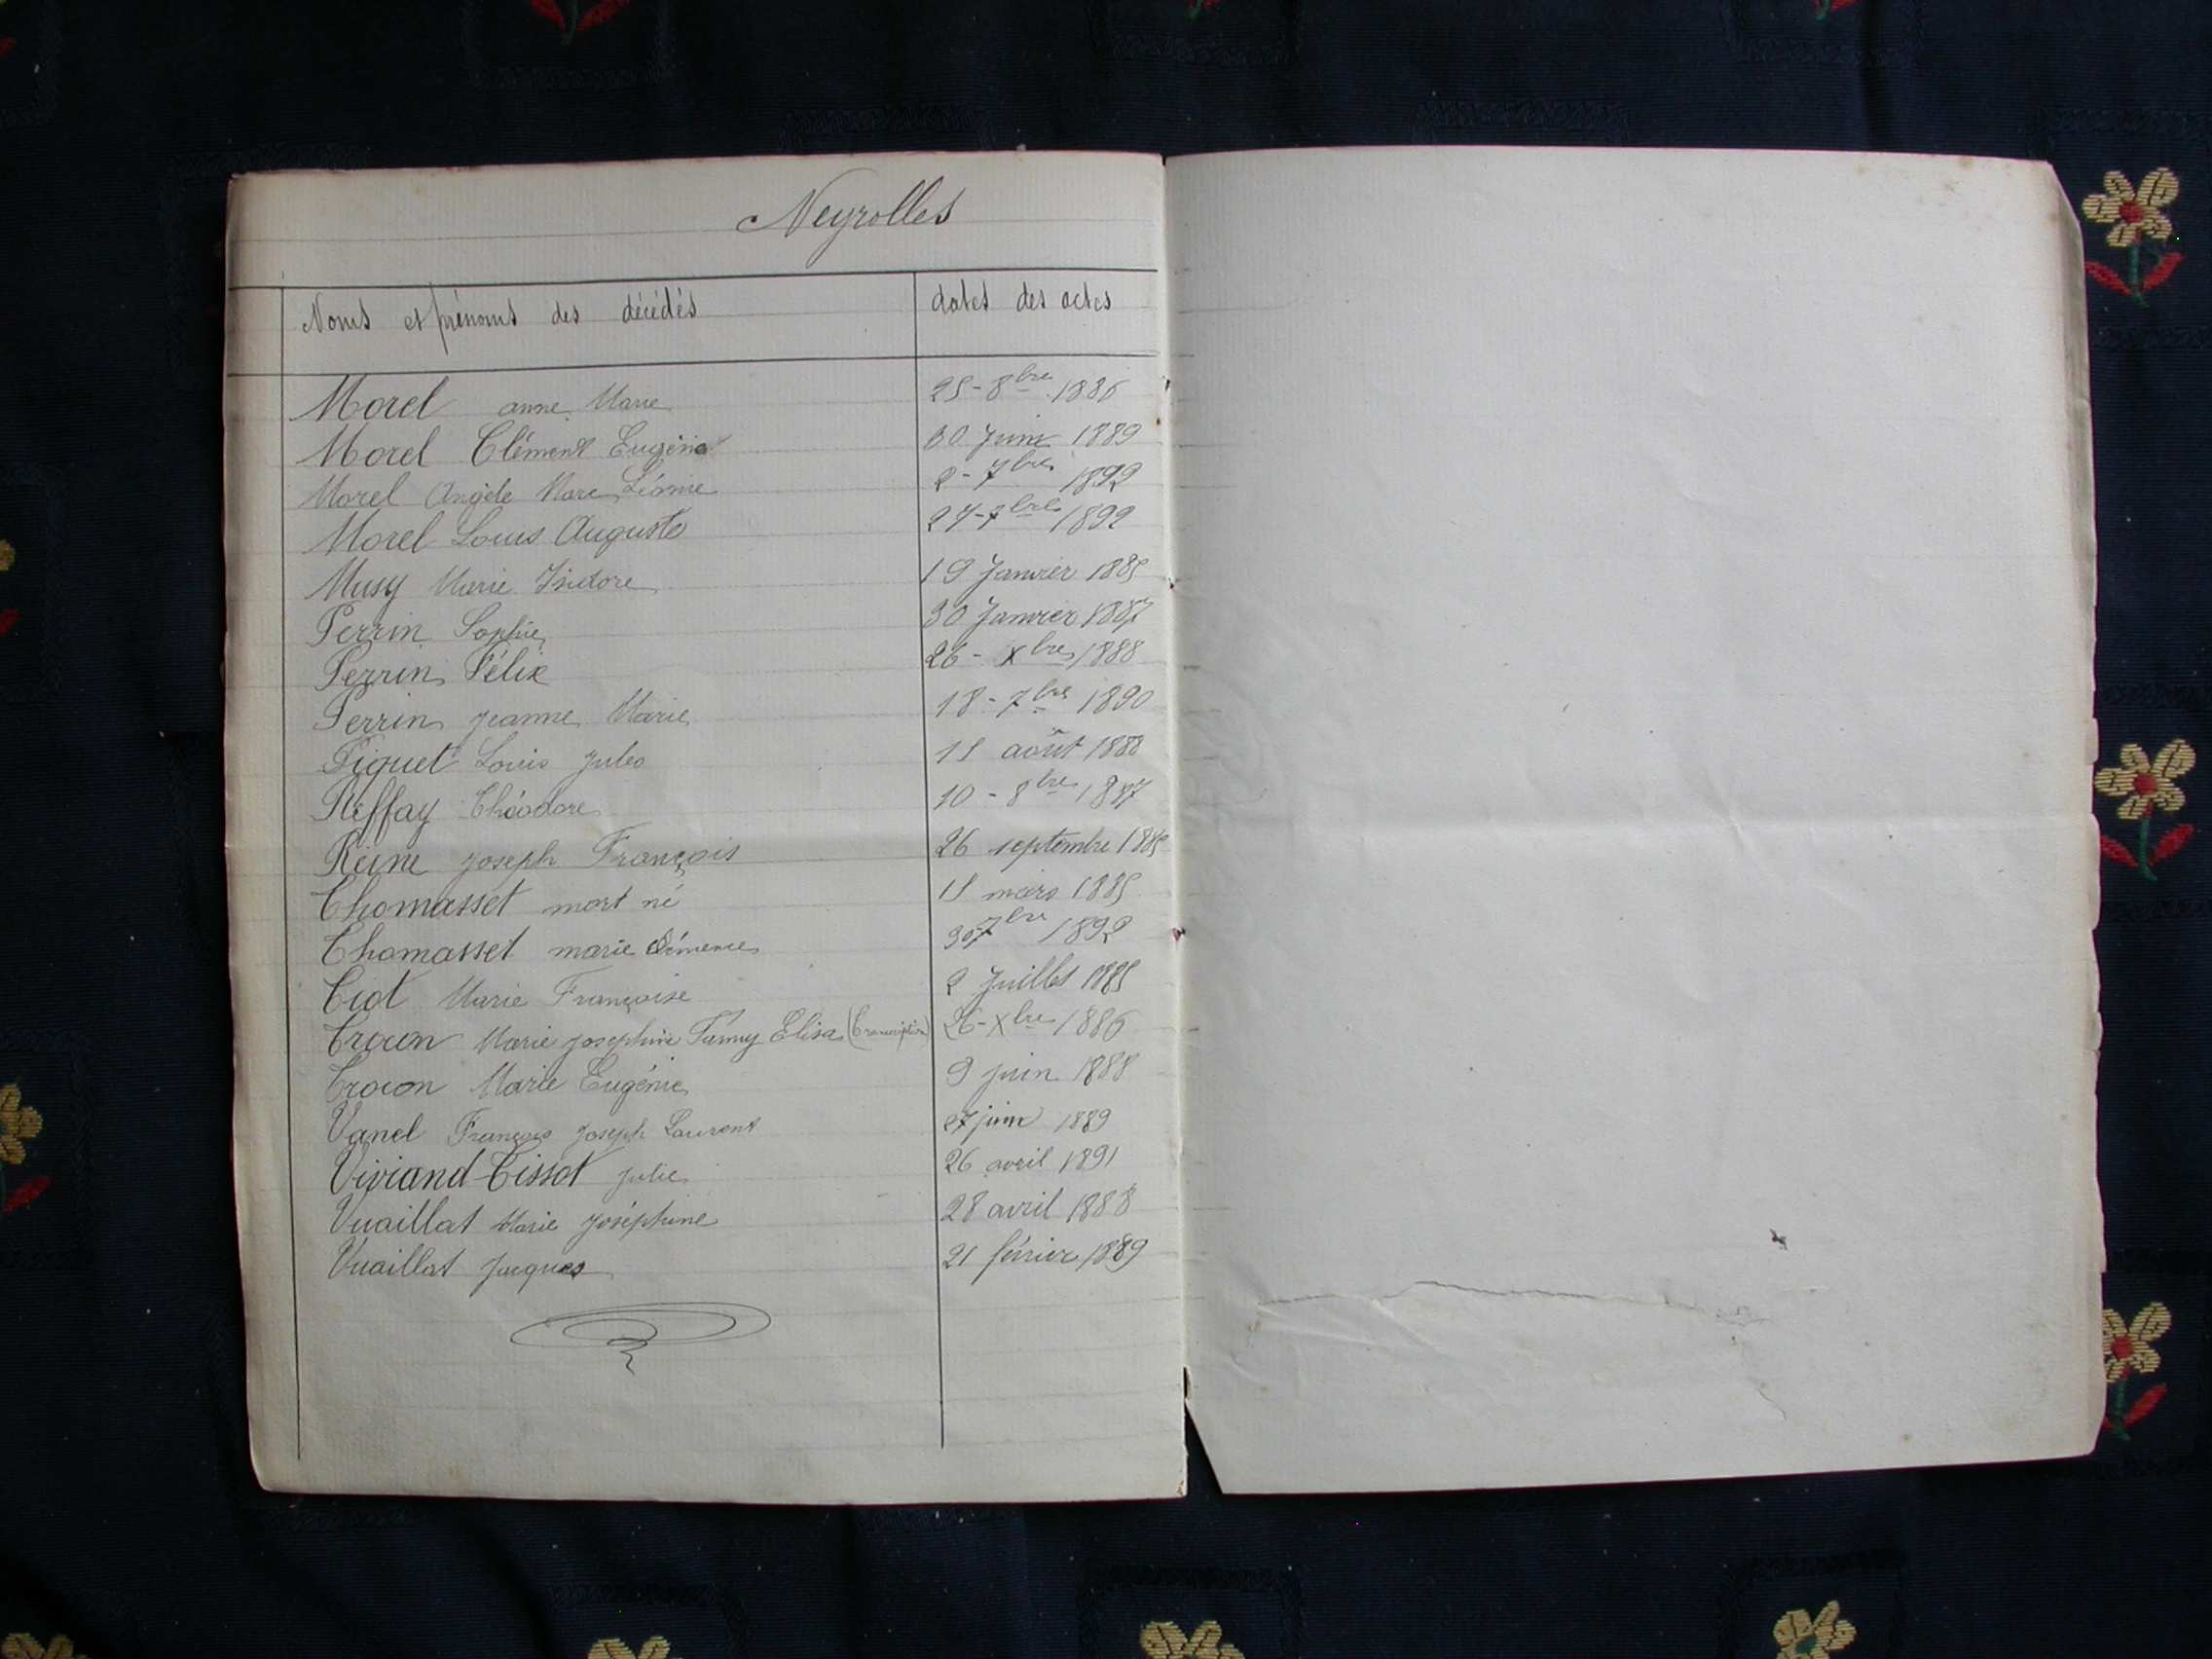 Neyrolles
Noms et prénoms des décédés dates des actes
Morel anne Marie 25 - 8bre 1886
Morel Clément Eugène 30 Juin 1889
Morel Angèle Marie Léonie 2 - 7bre 1892
Morel Louis Auguste 27 - 7bre 1892
Musy Marie Isidore 19 Janvier 1885
Perrin Sophie 30 Janvier 1887
Perrin Félix 26 - Xbre 1888
Perrin jeanne Marie 18 - 7bre 1890
Piquet Louis Jules 15 août 1888
Reffay Théodore 10 - 8bre 1887
Reine joseph François 26 septembre 1885
Thomasset mort né 15 mars 1885
Thomasset marie Clémence 30 7bre 1892
Tiot Marie Françoise 2 Juillet 1885
Marie joséphine Fanny Elisa (Transcription) 26 - Xbre 1886
Marie Eugénie 9 juin 1888
Vanel François Joseph Laurent 27 juin 1889
Viviand-Tissot julie 26 avril 1891
Vuaillat Marie joséphine 28 avril 1888
Vuaillat Jacques 21 février 1889